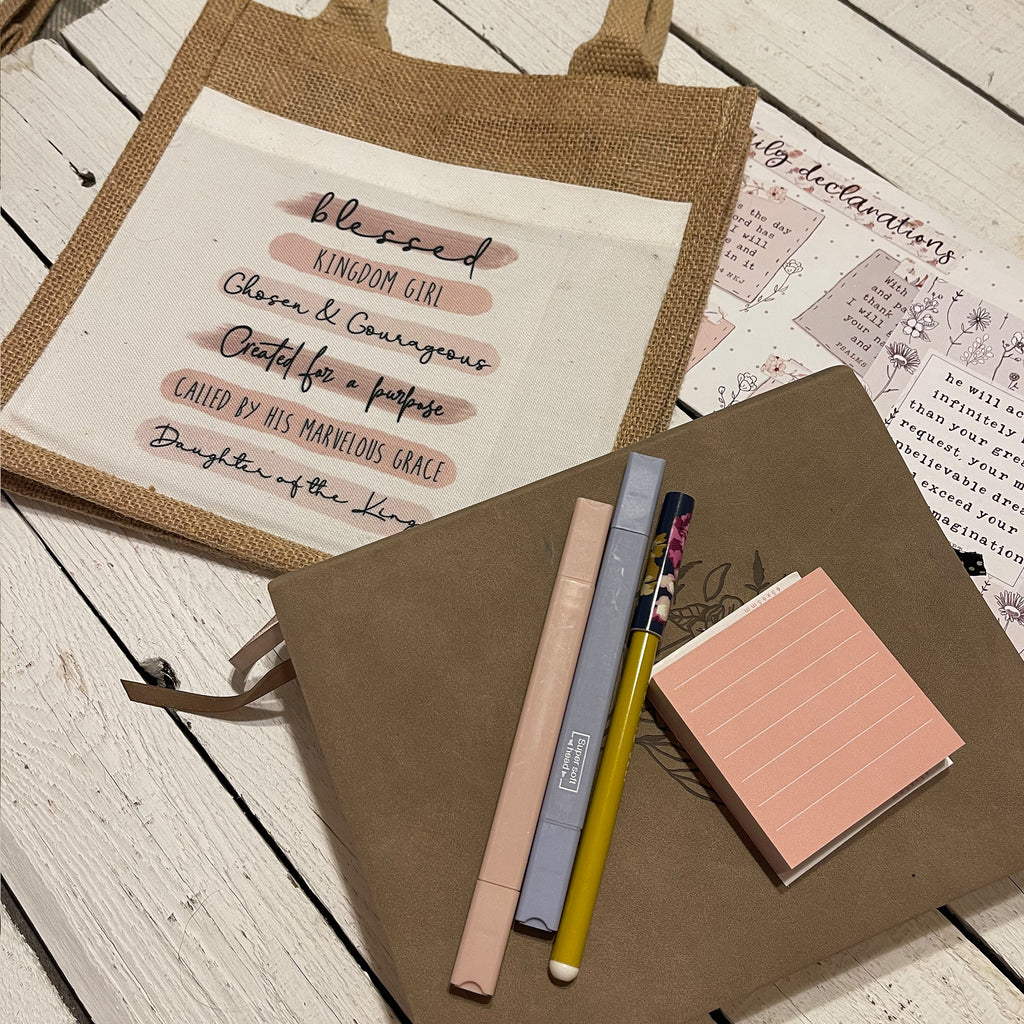 blessed
KINGDOM GIRL
Chosen & Courageous
Created for a purpose
CALLED BY HIS MARVELOUS GRACE
Daughter of the King
declarations
the day
has
I will
and
in it
With
and
thank
I will
your
and
PSALMS
he will
infinitely
than your
request, your
exceed your
Super soft
head